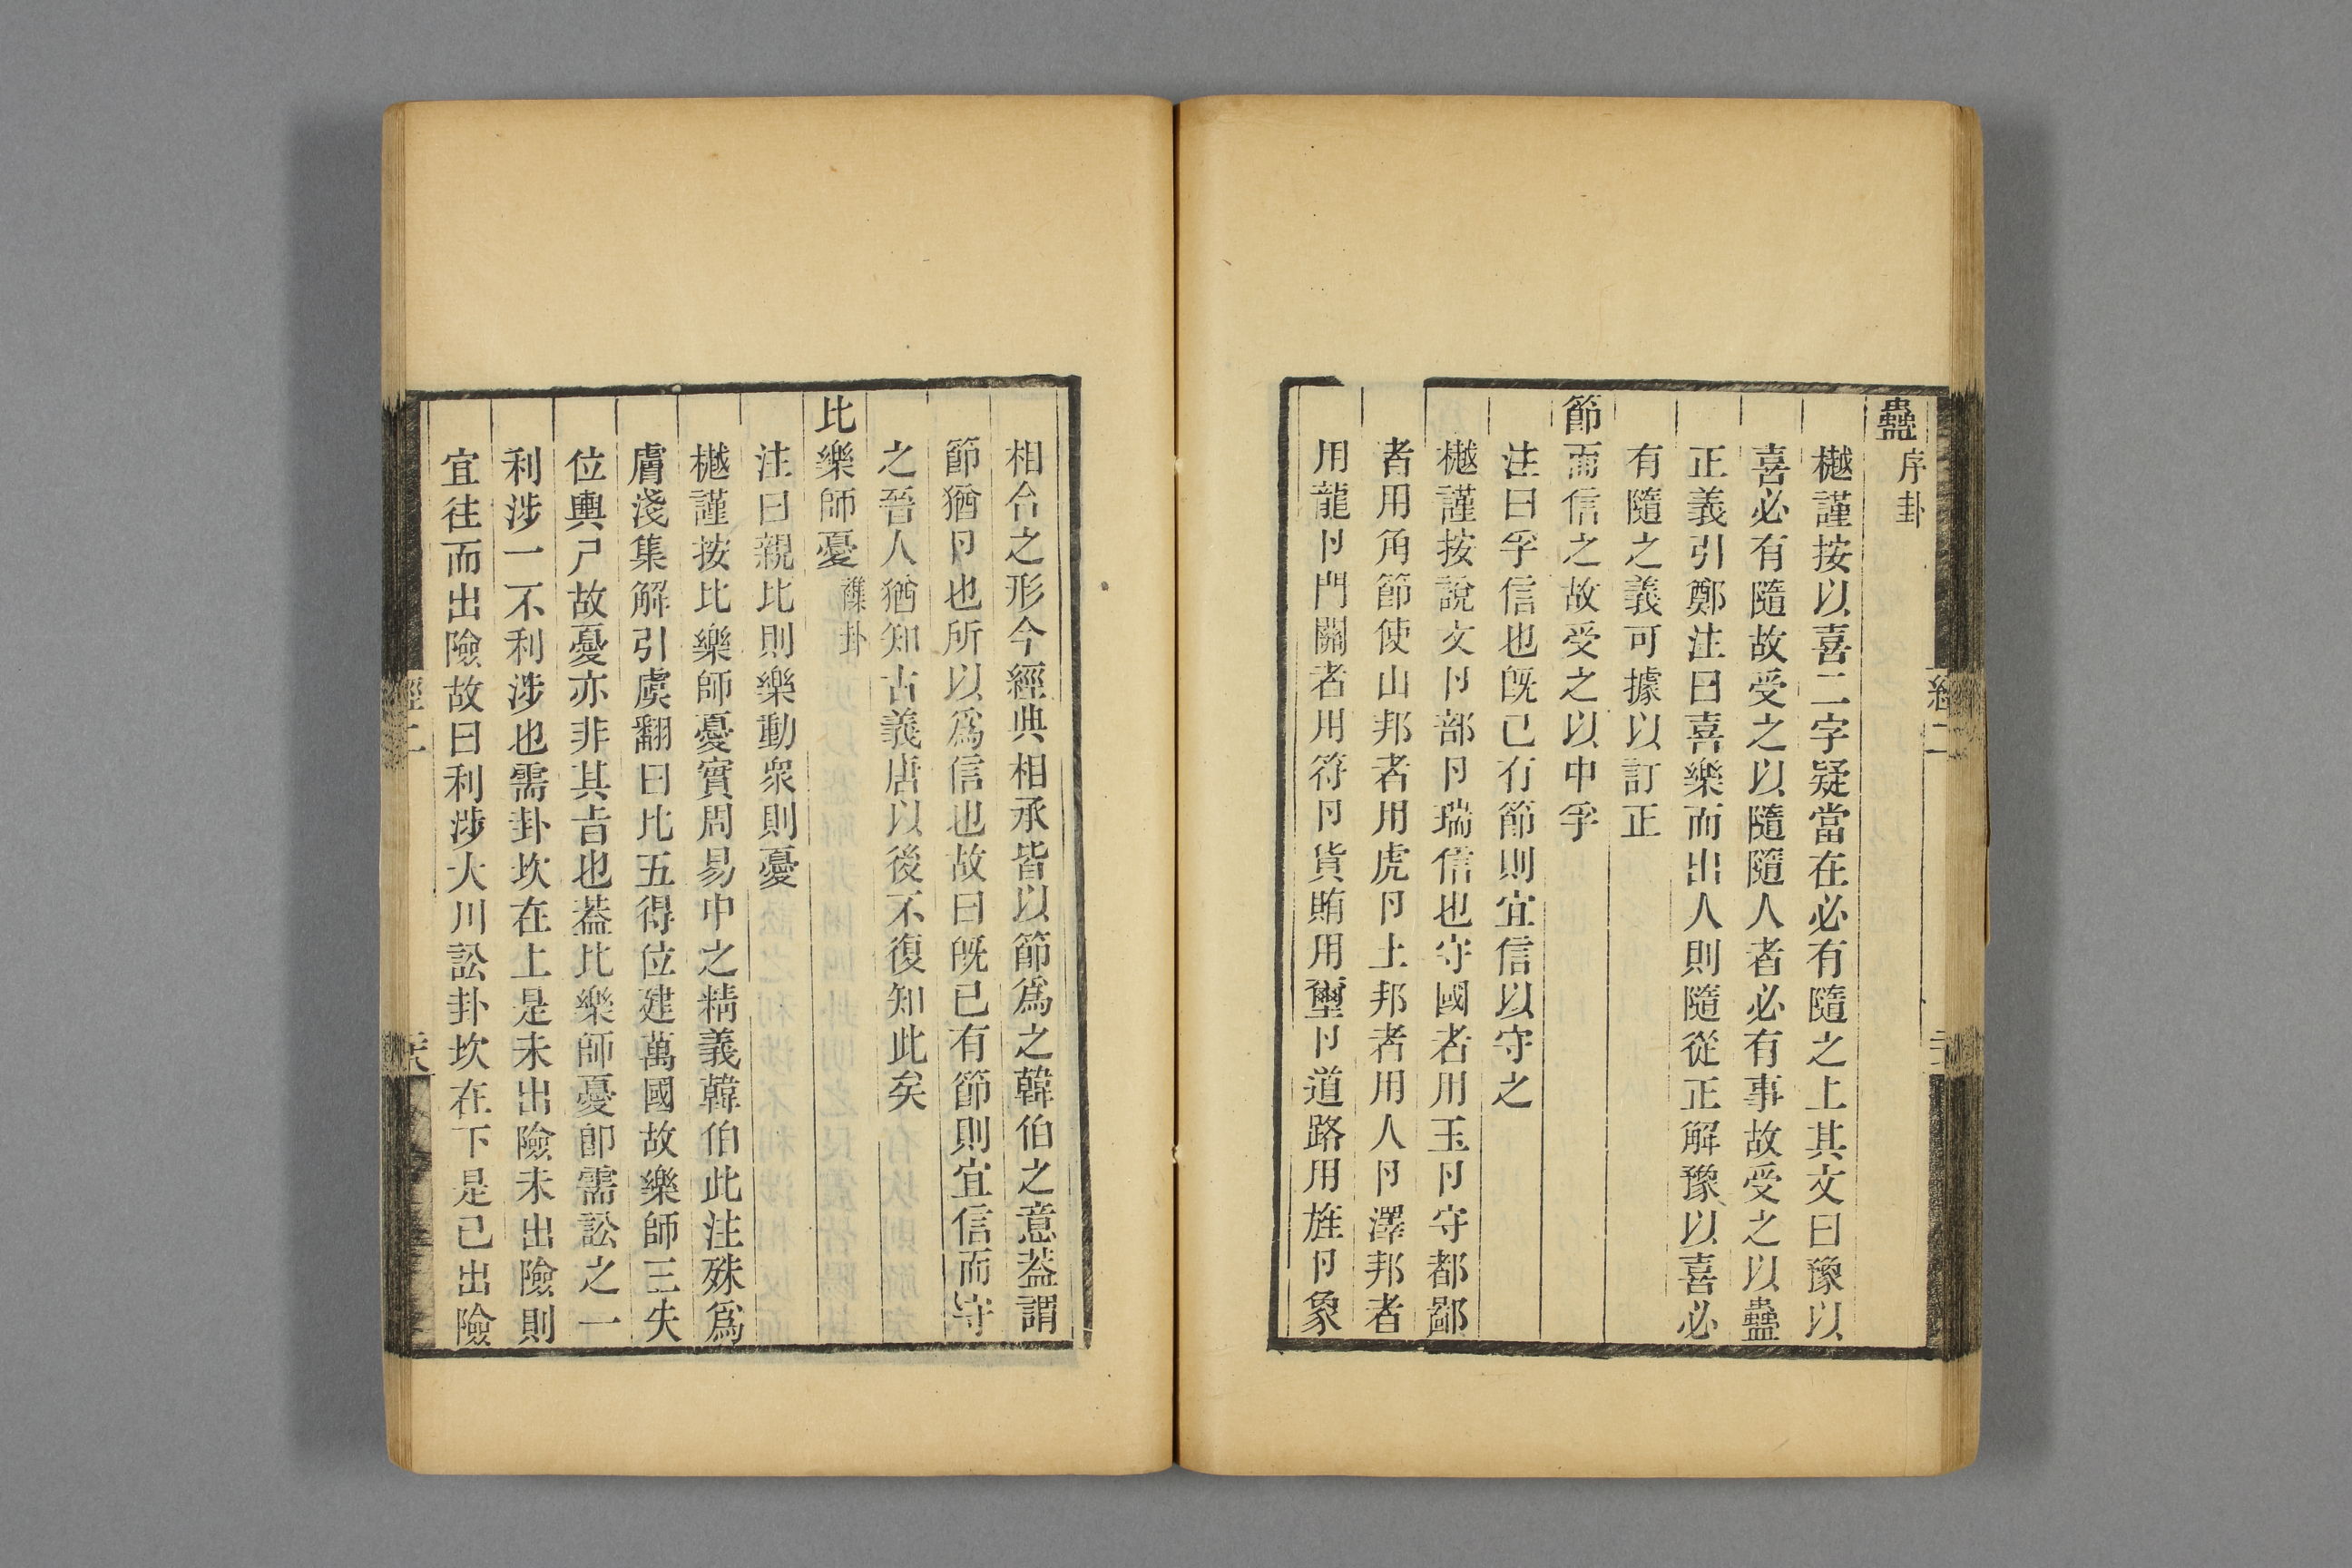 蠱序卦
樾謹按以喜二字疑當在必有隨之上其文曰豫以
喜必有隨故受之以隨隨人者必有事故受之以蠱
正義引鄭注曰喜樂而出人則隨從正解豫以喜必
有隨之義可據以訂正
節而信之故受之以中孚
注曰孚信也旣已有節則宜信以守之
樾謹按說文卪部卪瑞信也守國者用玉卪守都鄙
者用角節使山邦者用虎卪土邦者用人卪澤邦者
用龍卪門關者用符卪貨賄用璽卪道路用旌卪象
相合之形今經典相承皆以節爲之韓伯之意葢謂
節猶卪也所以爲信也故曰旣已有節則宜信而守
之晉人猶知古義唐以後不復知此矣
比樂師憂襍卦
注曰親比則樂動衆則憂
樾謹按比樂師憂實周易中之精義韓伯此注殊爲
膚淺集解引虞翻曰比五得位建萬國故樂師三失
位輿尸故憂亦非其旨也葢比樂師憂卽需訟之一
利涉一不利涉也需卦坎在上是未出險未出險則
宜往而出險故曰利涉大川訟卦坎在下是已出險
經二